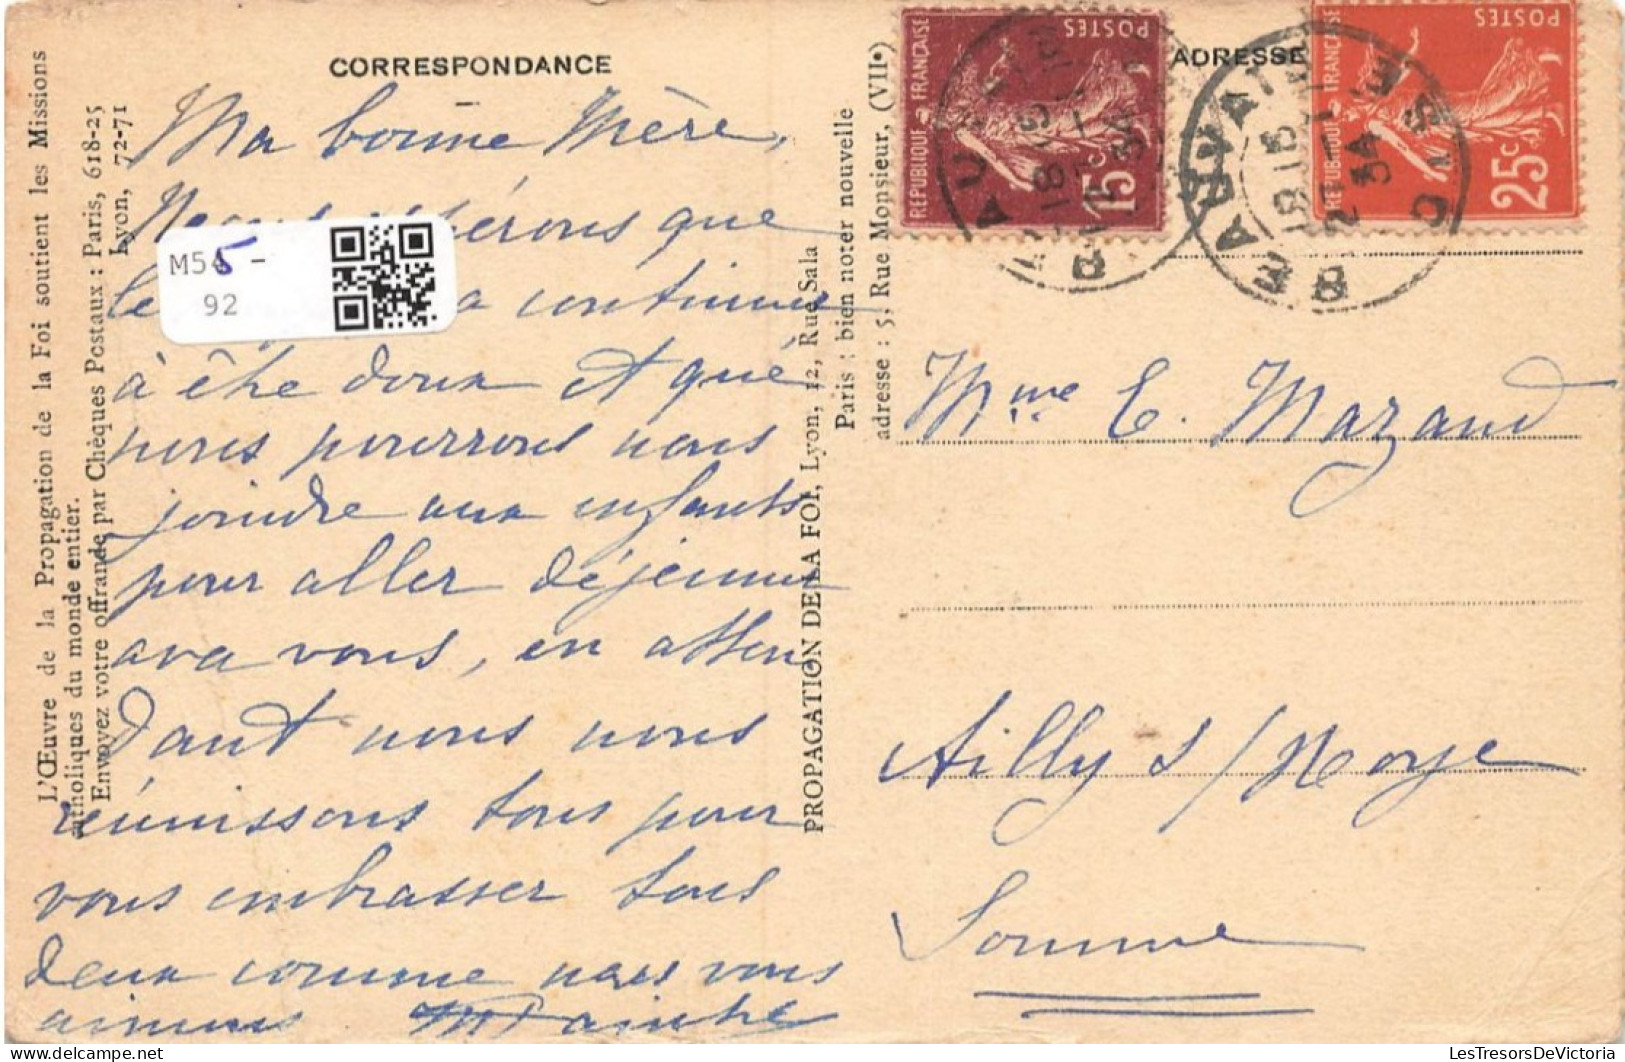 CORRESPONDANCE
Ma bonne Mère,
Nous espérons que
le a continuer
à être doux et que
nous pourrons nous
joindre aux enfants
pour aller déjeuner
avec vous, en atten
dant nous nous
réunissons tous pour
vous embrasser tous
deux comme nous vous
aimons
M545 -
92
L'Œuvre de la Propagation de la Foi soutient les Missions
catholiques du monde entier.
Envoyez votre offrande par Chèques Postaux : Paris, 618-25
Lyon, 72-71
PROPAGATION DE LA FOI, Lyon, 12, Rue Sala
Paris : bien noter nouvelle
adresse : 5, Rue Monsieur, (VIIe)
ADRESSE
REPUBLIQUE FRANÇAISE
POSTES
15c
REPUBLIQUE FRANÇAISE
POSTES
25c
BEAUVAIS
OISE
18 15
34
BEAUVAIS
OISE
18 15
34
Mme E. Mazand
Ailly s/Noye
Somme
LesTresorsDeVictoria